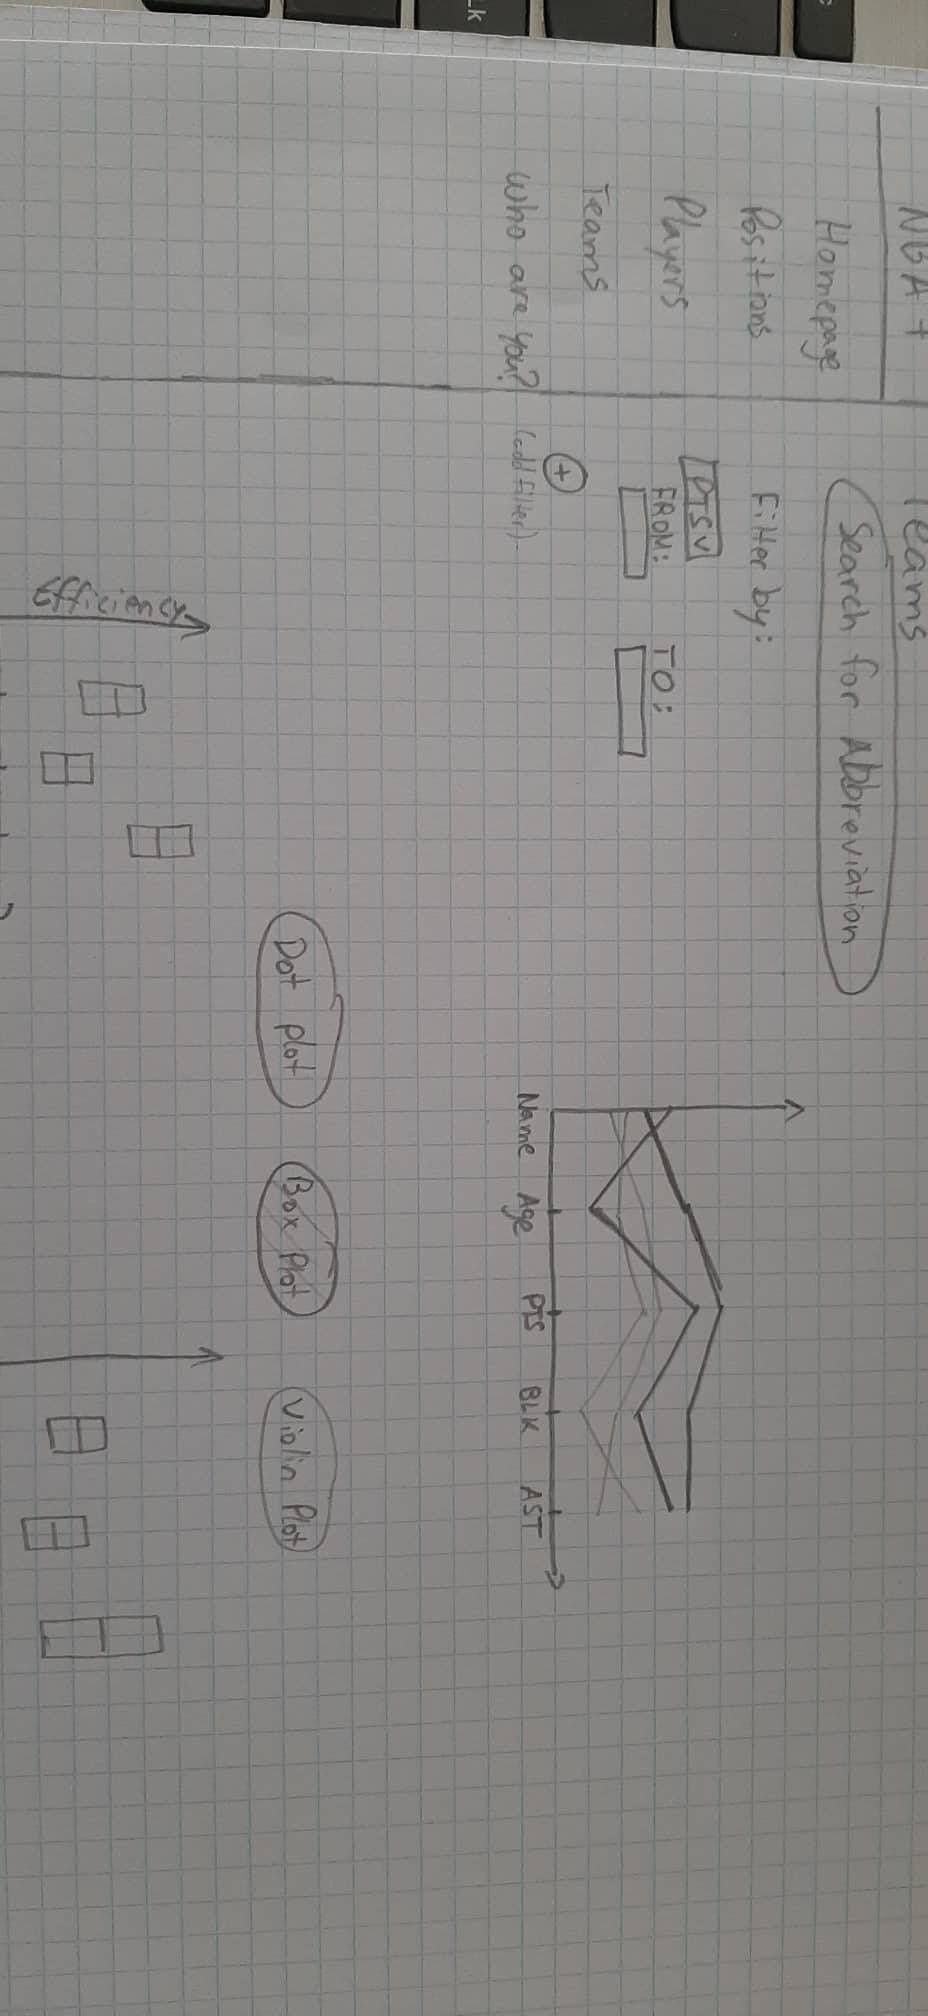 NBA +
Homepage
Positions
Players
Teams
Who are you?
Teams
Search for Abbreviation
Filter by:
PTS V
FROM:
TO:
+
(add filter)
Name Age PTS BLK AST
Dot plot Box Plot Violin Plot
Efficiency
k